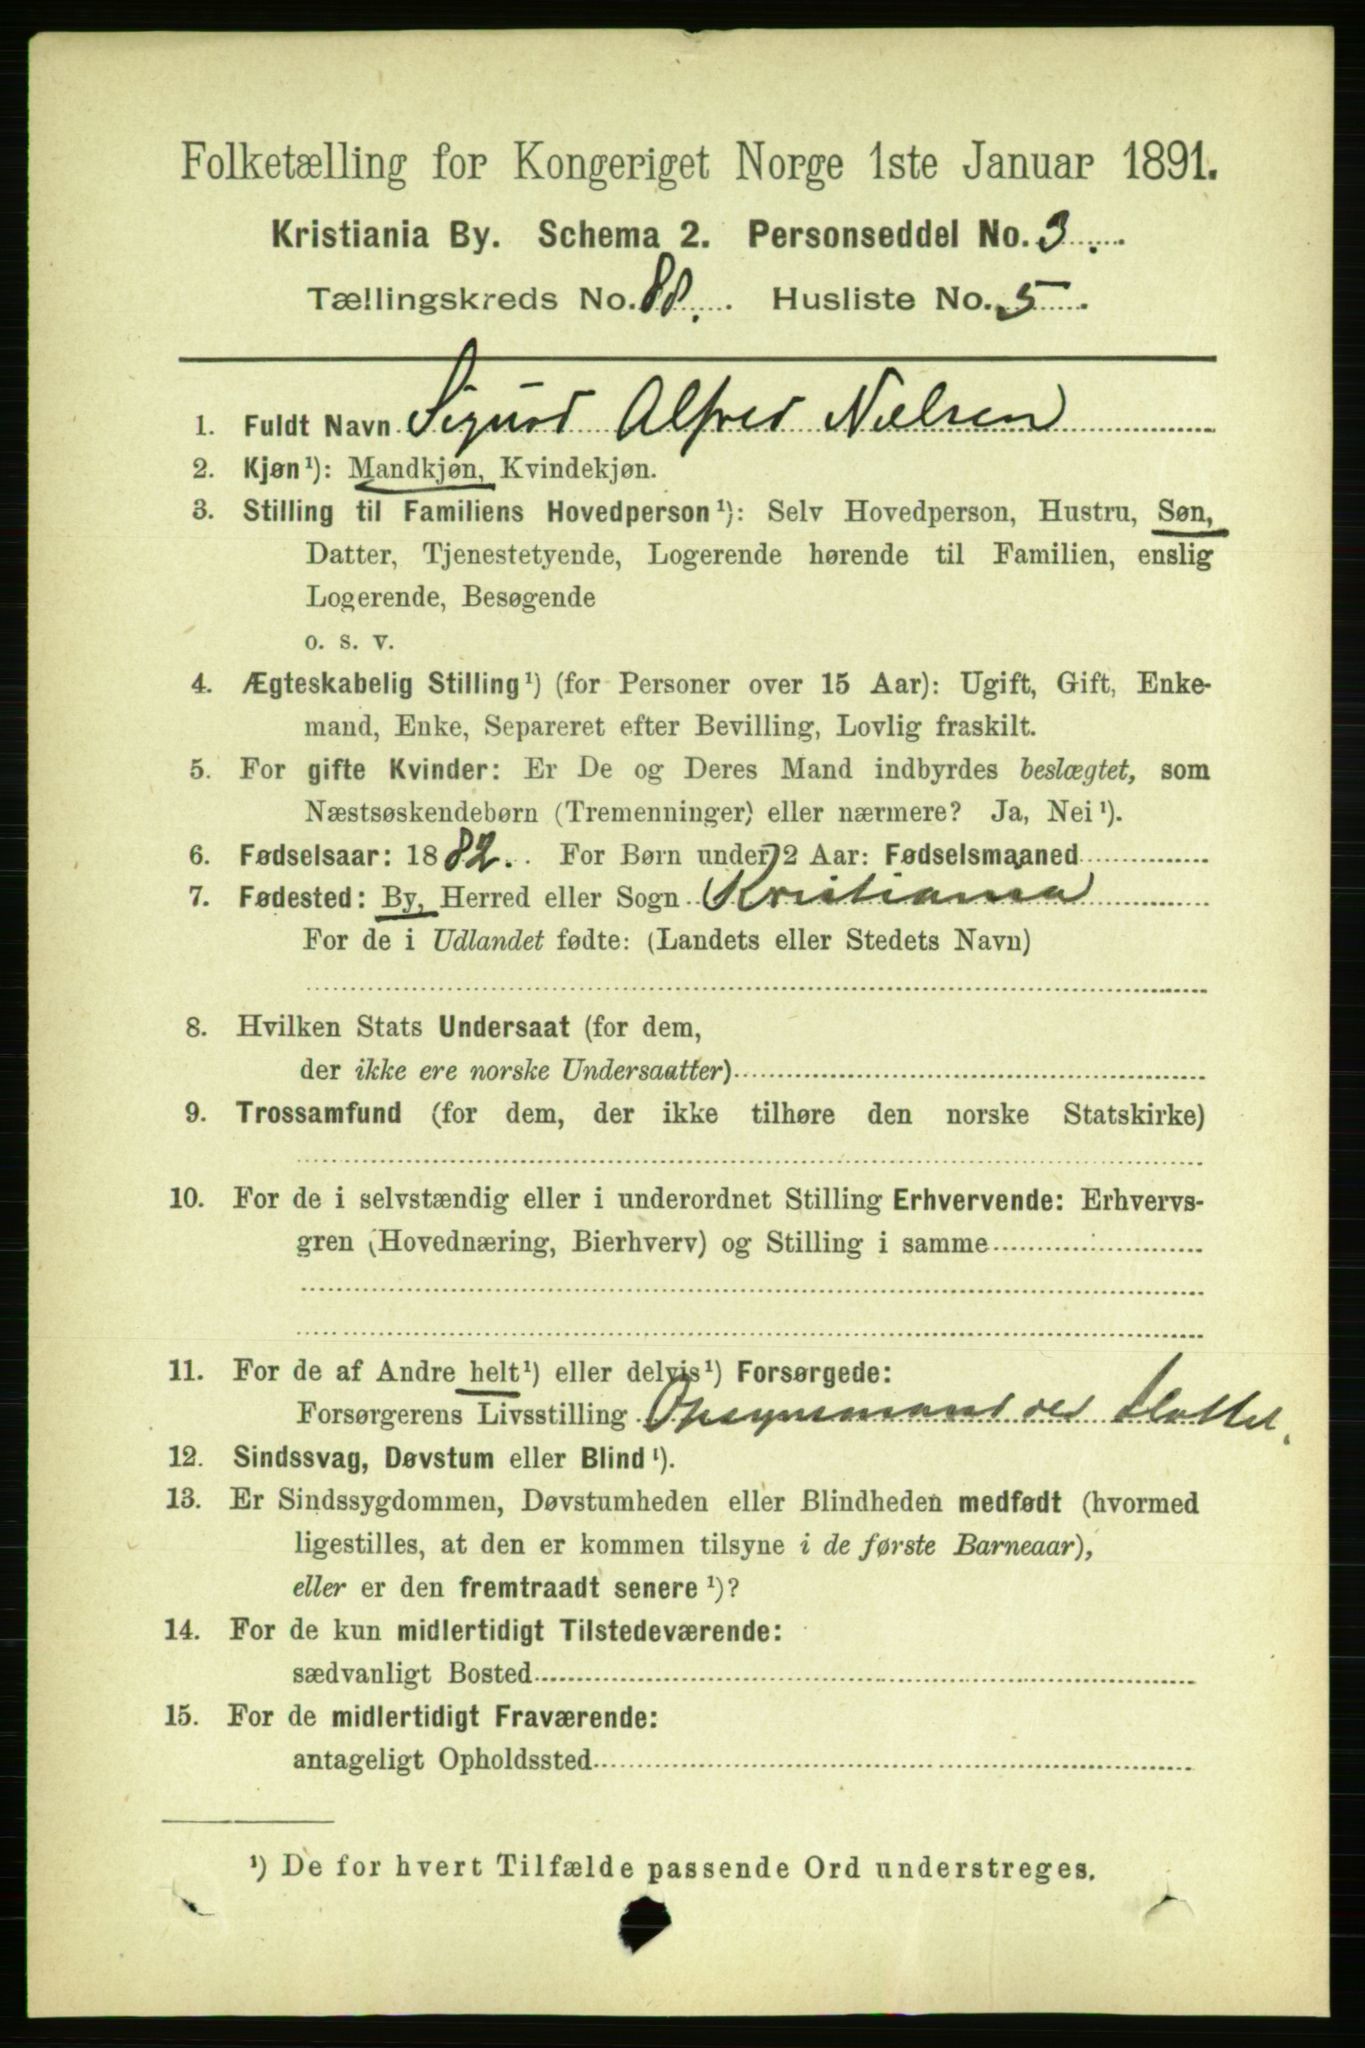 Folketælling for Kongeriget Norge 1ste Januar 1891.
Kristiania By. Schema 2. Personseddel No. 3.
Tællingskreds No. 88. Husliste No. 5.
1. Fuldt Navn Sigurd Alfred Nielsen
2. Kjøn ¹): Mandkjøn, Kvindekjøn.
3. Stilling til Familiens Hovedperson ¹): Selv Hovedperson, Hustru, Søn,
Datter, Tjenestetyende, Logerende hørende til Familien, enslig
Logerende, Besøgende
o. s. v.
4. Ægteskabelig Stilling ¹) (for Personer over 15 Aar): Ugift, Gift, Enke-
mand, Enke, Separeret efter Bevilling, Lovlig fraskilt.
5. For gifte Kvinder: Er De og Deres Mand indbyrdes beslægtet, som
Næstsøskendebørn (Tremenninger) eller nærmere? Ja, Nei ¹).
6. Fødselsaar: 1882. For Børn under 2 Aar: Fødselsmaaned
7. Fødested: By, Herred eller Sogn Kristiania
For de i Udlandet fødte: (Landets eller Stedets Navn)
8. Hvilken Stats Undersaat (for dem,
der ikke ere norske Undersaatter)
9. Trossamfund (for dem, der ikke tilhøre den norske Statskirke)
10. For de i selvstændig eller i underordnet Stilling Erhvervende: Erhvervs-
gren (Hovednæring, Bierhverv) og Stilling i samme
11. For de af Andre helt ¹) eller delvis ¹) Forsørgede:
Forsørgerens Livsstilling Opsynsmand ved Slottet.
12. Sindssvag, Døvstum eller Blind ¹).
13. Er Sindssygdommen, Døvstumheden eller Blindheden medfødt (hvormed
ligestilles, at den er kommen tilsyne i de første Barneaar),
eller er den fremtraadt senere ¹)?
14. For de kun midlertidigt Tilstedeværende:
sædvanligt Bosted
15. For de midlertidigt Fraværende:
antageligt Opholdssted
¹) De for hvert Tilfælde passende Ord understreges.